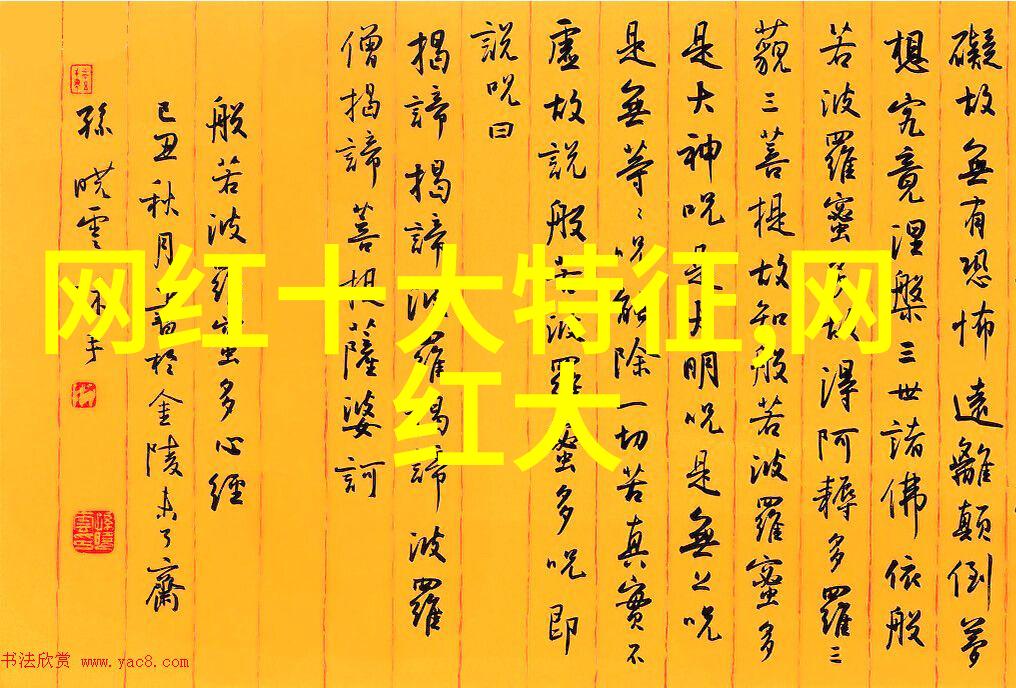 礙故無有恐怖遠離顛倒夢
想究竟涅槃三世諸佛依般
若波羅蜜多故得阿耨多羅三
藐三菩提故知般若波羅蜜多
是大神呪是大明呪是無上呪
是無等〻呪能除一切苦真實不
虛故說般若波羅蜜多呪即
說呪曰
揭諦揭諦波羅揭諦波羅
僧揭諦菩提薩婆訶
般若波羅蜜多心經
己丑秋月書於金陵未了齋
孫曉雲沐手
网红十大特征,网
红大
书法欣赏 www.yac8.com